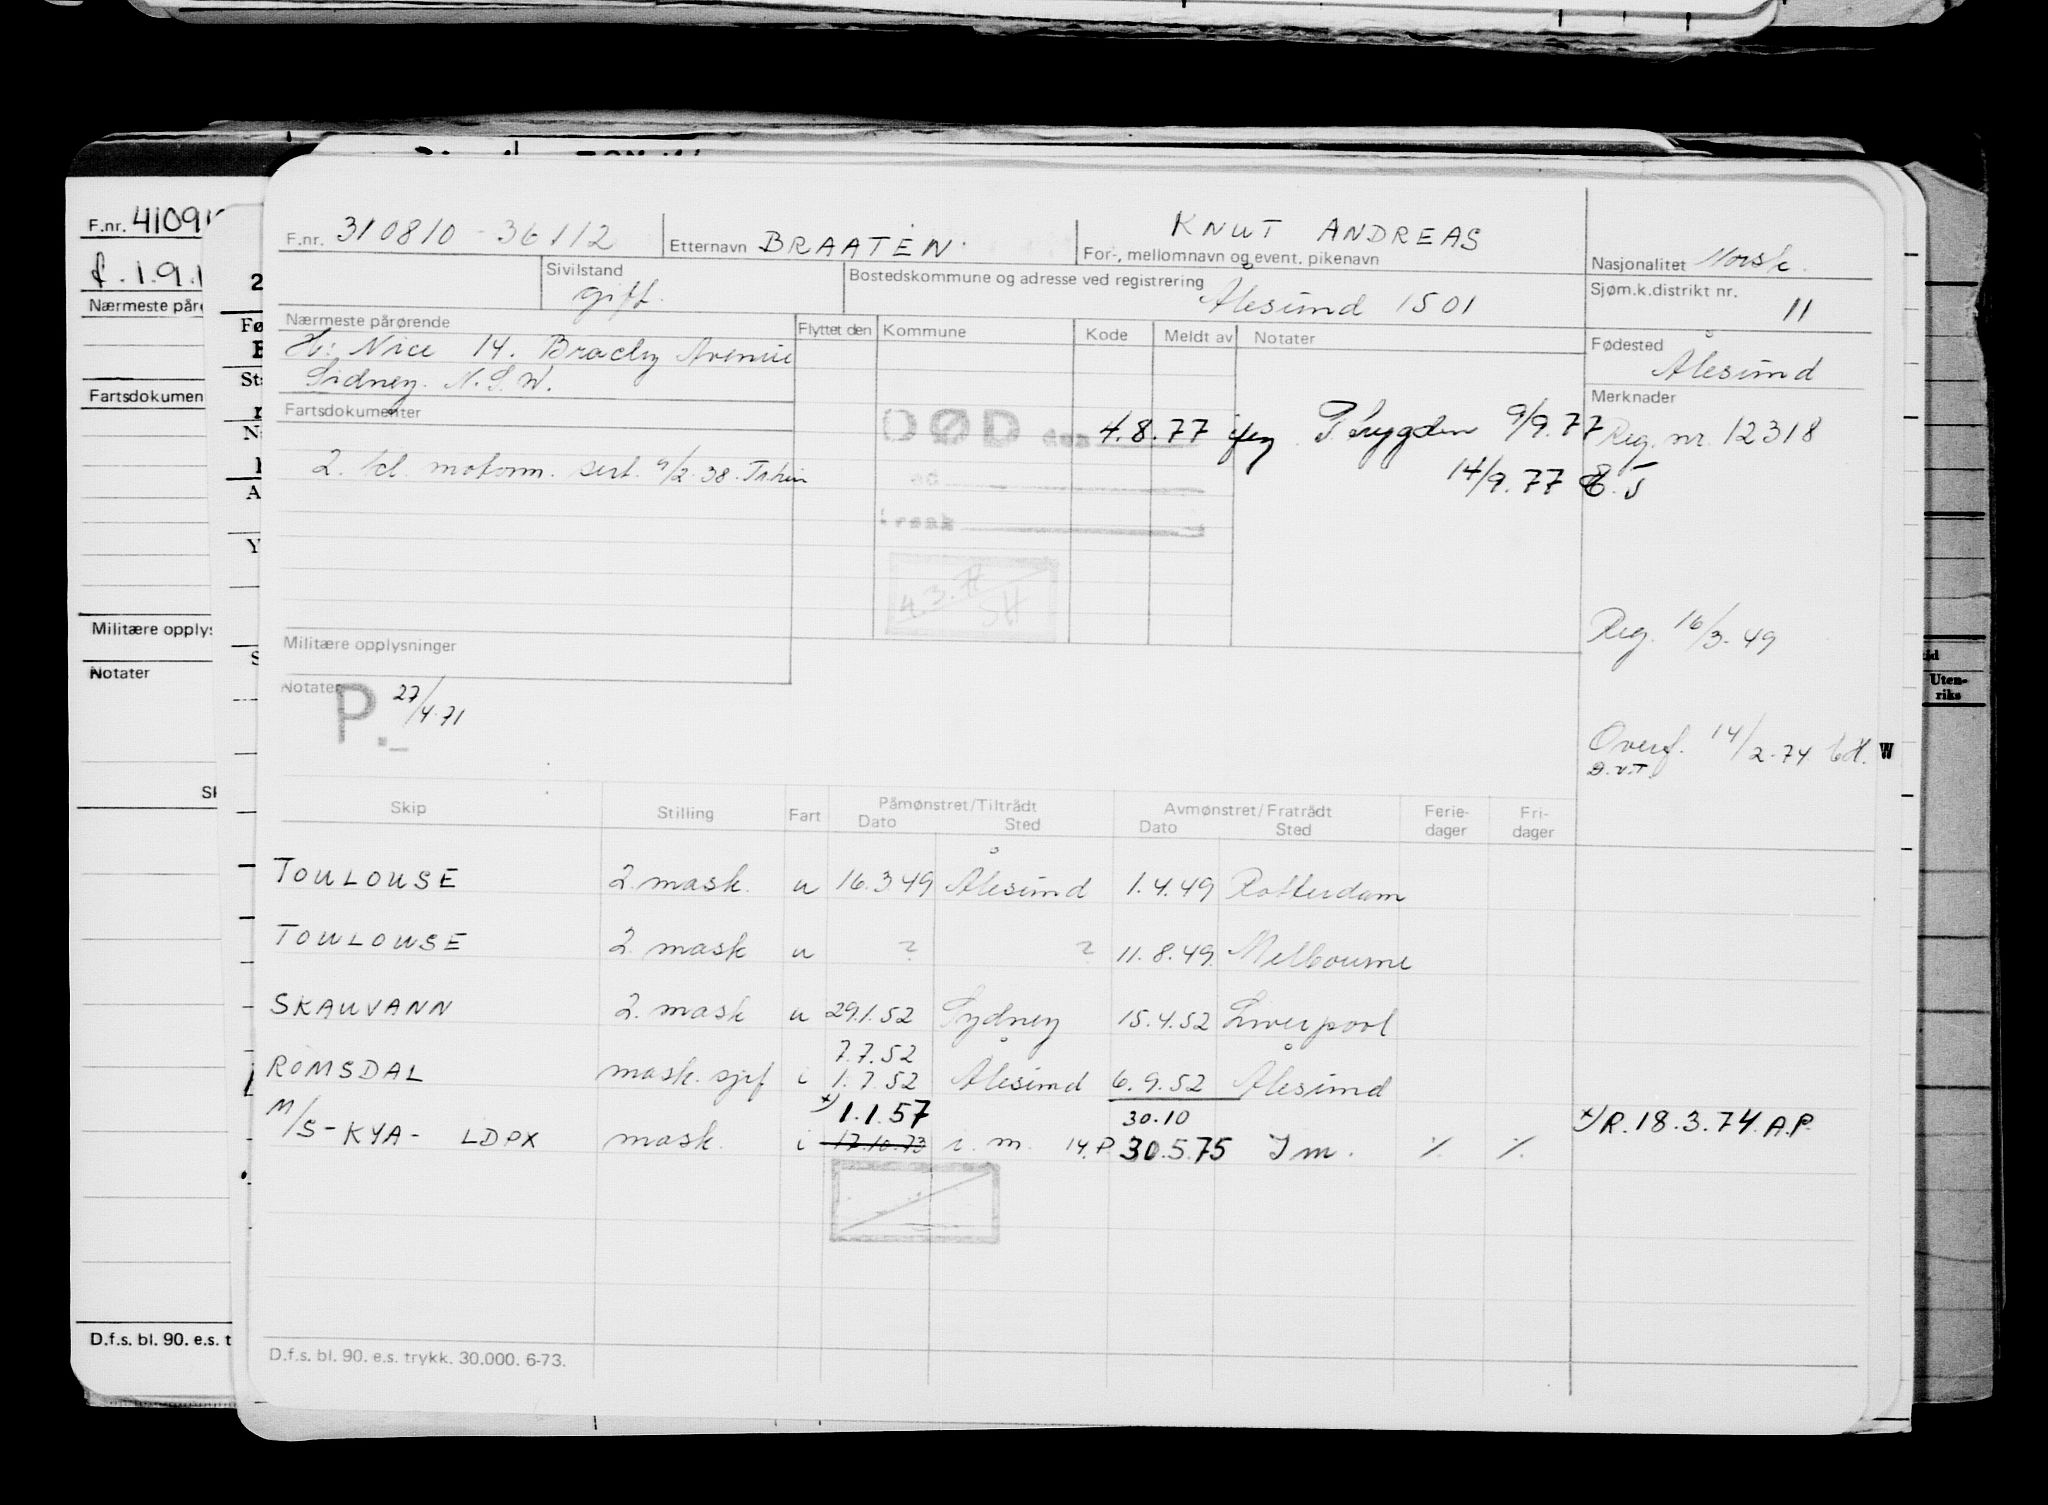 F.nr. 310810-36112 Etternavn BRAATEN For-, mellomnavn og event. pikenavn KNUT ANDREAS Nasjonalitet Norsk.
Sivilstand gift. Bostedskommune og adresse ved registrering Ålesund 1501 Sjøm.k.distrikt nr. 11
Nærmeste pårørende Flyttet den Kommune Kode Meldt av Notater Fødested Ålesund
H: Nice 14. Avenue
Sidney. N.S.W.
Merknader
Fartsdokumenter
DØD den 4.8.77 P.trygden 9/9.77 Reg. nr. 12318
2. kl. sert. 9/2.38.
14/9.77
Reg. 16/3.49
Militære opplysninger
Notater P. 27/4.71
Overf. 14/2.74 W
D.v.T.
Skip Stilling Fart Påmønstret/Tiltrådt Avmønstret/Fratrådt Ferie- Fri-
Dato Sted Dato Sted dager dager
TOULOUSE 2. mask. u 16.3.49 Ålesund 1.4.49 Rotterdam
TOULOUSE 2. mask u ? ? 11.8.49. Melbourne
SKAUVANN 2. mask u 29.1.52 Sydney 15.4.52 Liverpool
7.7.52
ROMSDAL mask. sjef i 1.7.52 Ålesund 6.9.52 Ålesund
x) 1.1.57 30.10 x) R.18.3.74. A.P.
M/S-KYA- LDPX mask. i 17.10.73 i. m. 14.P 30.5.75 I m. % %
D.f.s. bl. 90. e.s. trykk. 30.000. 6-73.
F.nr. 41091
f. 1.9.1
Nærmeste påre
Fartsdokumen
Militære opply
Notater
D.f.s. bl. 90. e.s. t
Uten-
riks